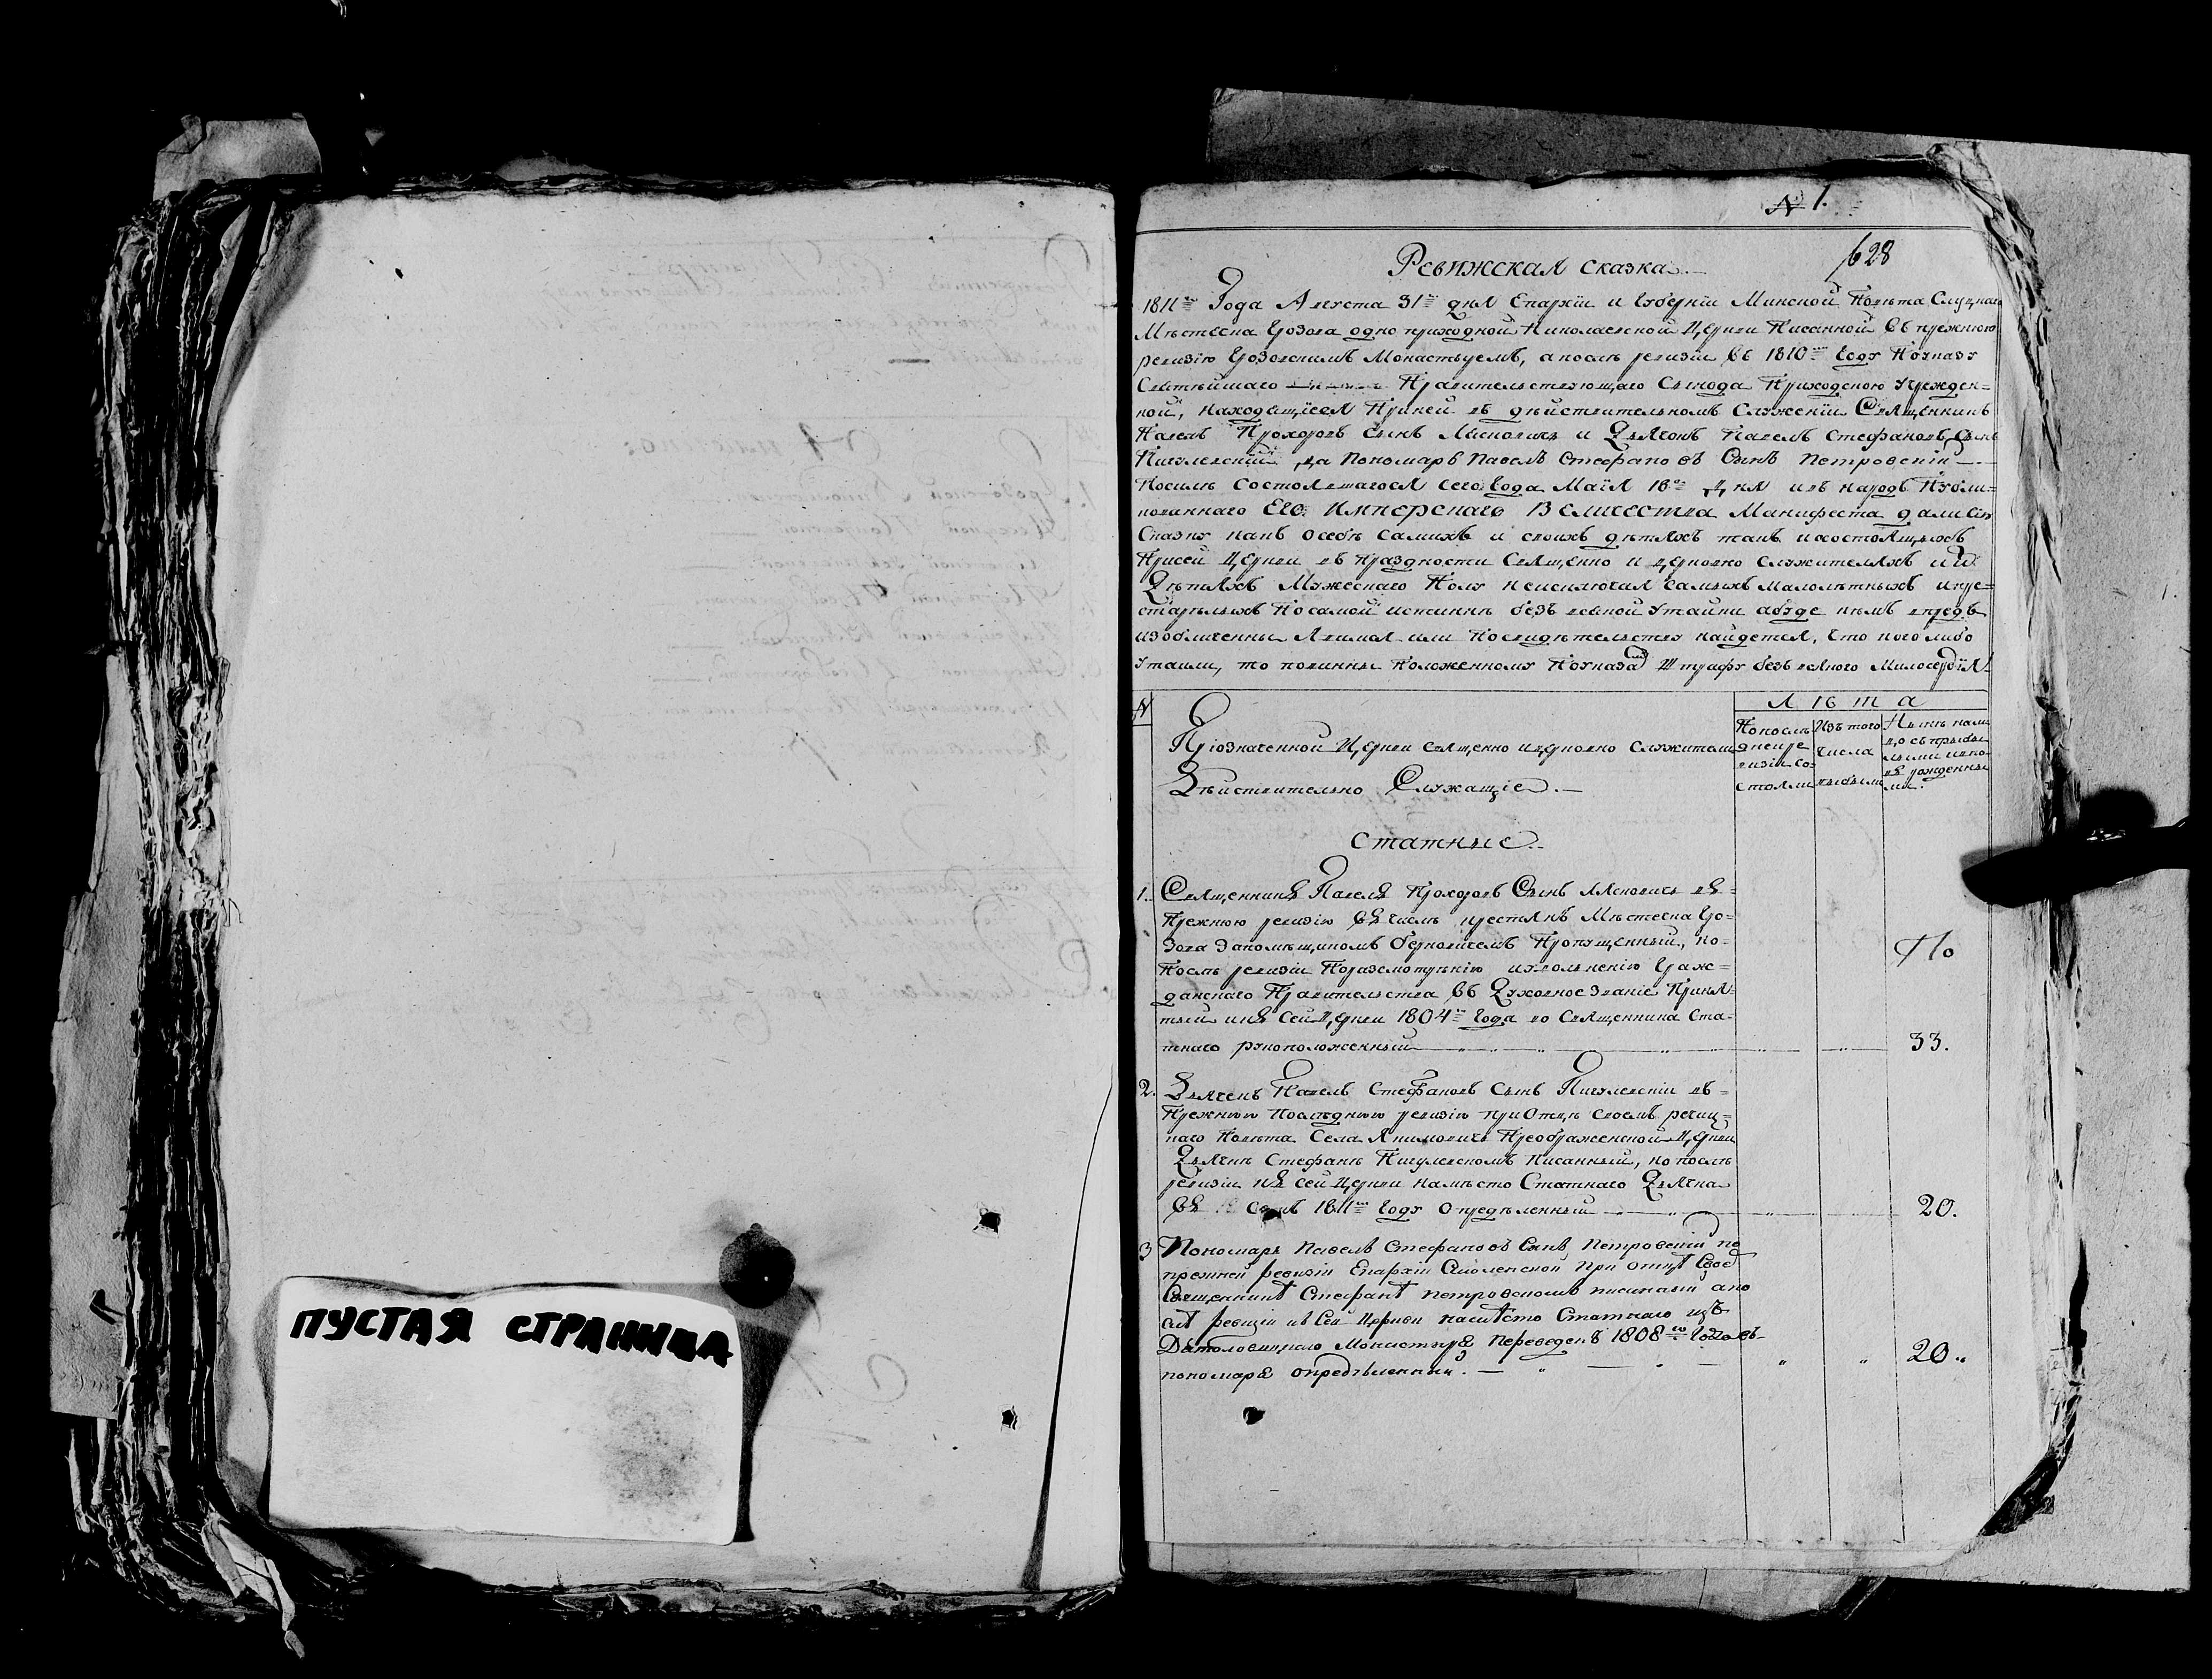 ПУСТАЯ СТРАНИЦА
№ 1.
628
Ревижская сказка.
1811го Года Августа 31го дня Епархіи и Губерніи Минской Повѣта Слуцкаго
Мѣстечка Грозова одно приходной Николаевской Церкви Писанной въ прежнюю
ревизію Грозовскимъ Монастыремъ, а послѣ ревизіи въ 1810мъ Году По указу
Святѣйшаго Правительствующаго Сѵнода Приходскою Учрежден=
ной, находящіеся При ней въ дѣйствительномъ Служеніи Священникъ
Павелъ Прохоровъ Сынъ и Дьячокъ Павелъ Стефановъ Сынъ
Пигулевскій, да Пономарь Павелъ Стефановъ Сынъ Петровскій
Посилѣ Состоявшагося Сего Года Маія 18го Дня и въ народъ Публи=
кованнаго Его Имперскаго Величества Манифеста дали Сію
Сказку какъ о себѣ самихъ и своихъ дѣтяхъ такъ и о состоящихъ
При сей Церкви въ Праздности Священно и церковно служителяхъ и их
Дѣтяхъ Мужескаго Полу не исключая самыхъ малолѣтныхъ и пре=
старѣлыхъ По самой истиннѣ безъ всякой Утайки а буде кѣмъ впредь
изобличенны Явимся или По свидѣтельству найдется, что кого либо
Утаили, то повинны Положенному По указам Штрафу безъ всякаго Милосердія.
№
Лѣта
При означенной Церкви священно и церковно служители
Дѣйствительно Служащіе.
По послѣ
дней ре
визіи со
стояли
Изъ того
числа
выбыли
Нынѣ нали
цо съ прибы
лыми и вно
вь рожденны
ми.
Статные.
1. Священникъ Павелъ Прохоровъ Сынъ въ=
Прежнюю ревизію въ числѣ крестьянъ Мѣстечка Гро=
зова за помѣщикомъ Пропущенный, по=
Послѣ ревизіи По разсмотрѣнію и увольненію Граж=
данскаго Правительства въ Духовное званіе Приня=
тый и къ Сей Церкви 1804го Года во Священника Ста=
тнаго рукоположенный
33.
2. Дьячекъ Павелъ Стефановъ Сынъ Пигулевскій въ=
Прежнюю Послѣднюю ревизію при Отцѣ своемъ речиц=
каго Повѣта Села Якимовичъ Преображенской Церкви
Дьячкѣ Стефанѣ Пигулевскомъ Писанный, но послѣ
ревизіи къ сей Церкви на мѣсто Статнаго Дьячка
въ семъ 1811мъ Году Опредѣленный
20.
3 Пономарь Павелъ Стефановъ Сынъ Петровскій по
прежней ревизіи Епархіи Смоленской При отцѣ Свое
Священникѣ Стефанѣ Петровскомъ писанный а по
слѣ ревизіи къ Сей Церкви на мѣсто Статнаго изъ
Монастыря Переведенъ 1808го Года въ=
пономаря опредѣленный.
20.